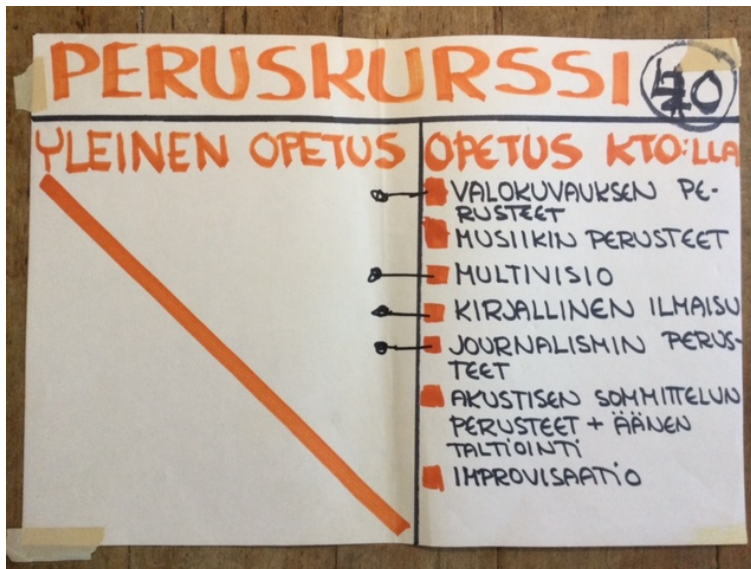 PERUSKURSSI
YLEINEN OPETUS
OPETUS KTO:LLA
VALOKUVAUKSEN PE-
RUSTEET
MUSIIKIN PERUSTEET
MULTIVISIO
KIRJALLINEN ILMAISU
JOURNALISMIN PERUS-
TEET
AKUSTISEN SOMMITTELUN
PERUSTEET + ÄÄNEN
TALTIOINTI
IMPROVISAATIO